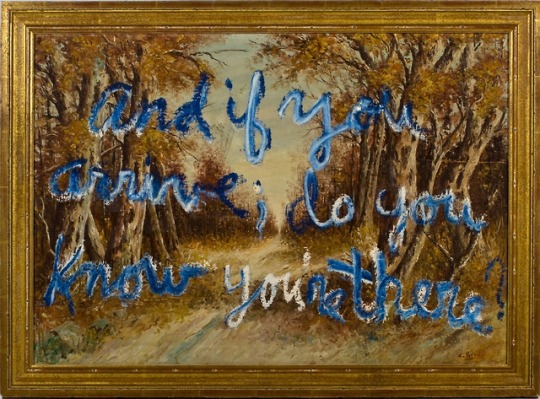 and if you
arrive; do you
know you're there?